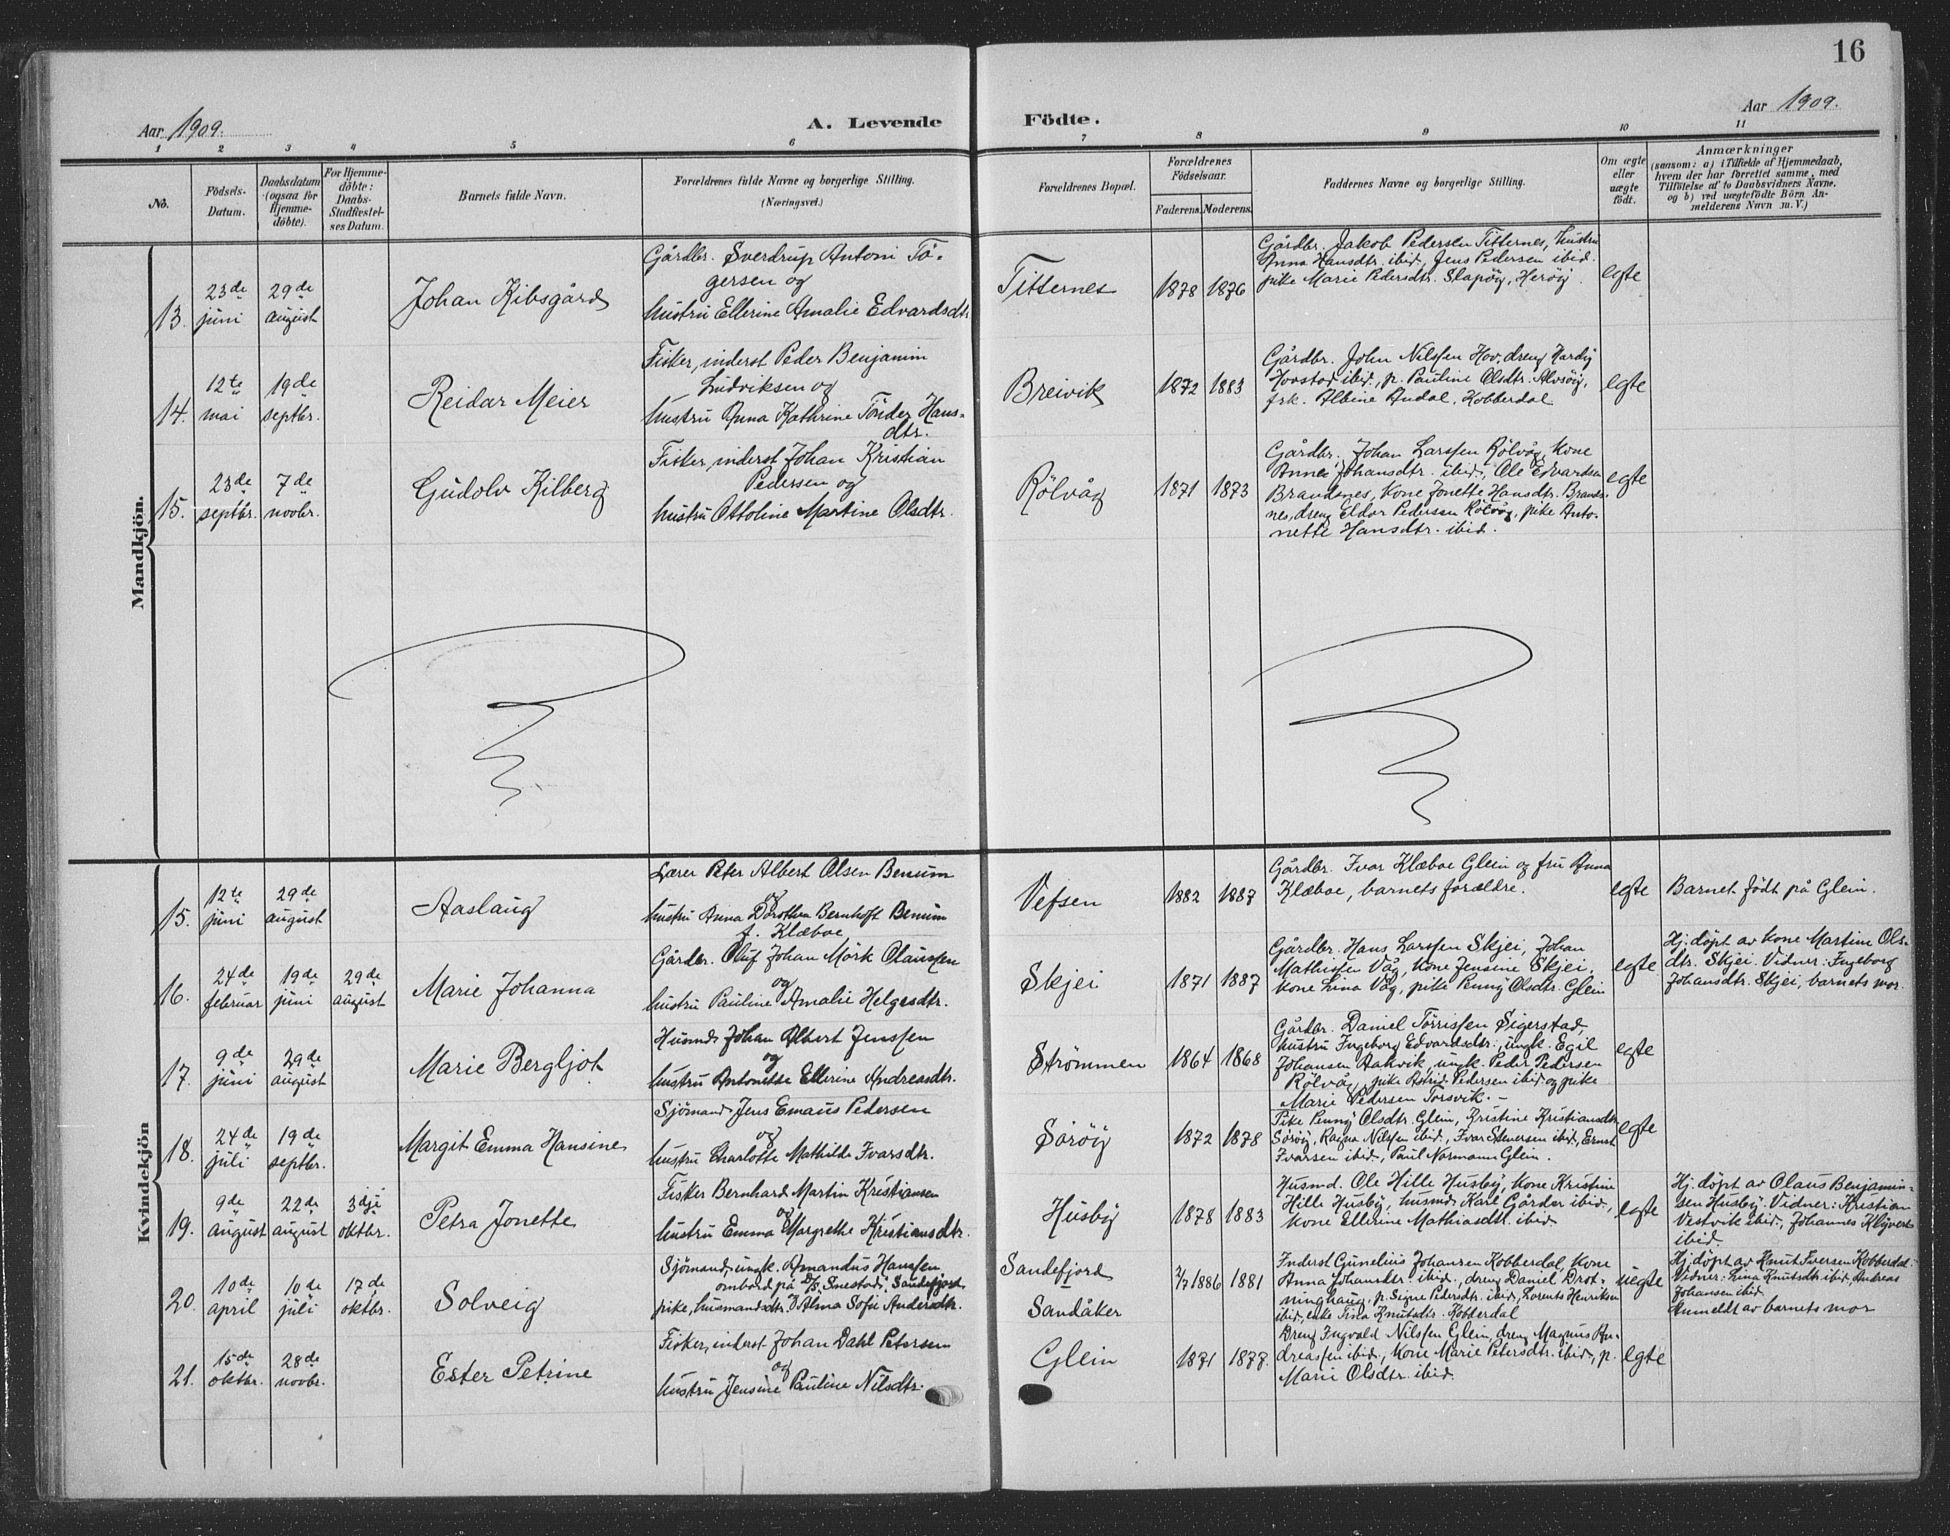 16
Aar 1909.
A. Levende Födte.
Aar 1909.
1 2 3 4 5 6 7 8 9 10 11
No.
Födsels-
Datum.
Daabsdatum
(ogsaa for
Hjemme-
döbte).
For Hjemme-
döbte:
Daabs-
Stadfæstel-
ses Datum.
Barnets fulde Navn.
Forældrenes fulde Navne og borgerlige Stilling.
(Næringsvei.)
Forældrenes Bopæl.
Forældrenes
Födselsaar.
Faderens. Moderens.
Faddernes Navne og borgerlige Stilling.
Om ægte
eller
uægte
födt.
Anmærkninger
(saasom: a) i Tilfælde af Hjemmedaab,
hvem der har forrettet samme, med
Tilföielse af to Daabsvidners Navne,
og b) ved uægtefödte Börn An-
melderens Navn m. V.)
Mandkjön.
13. 23de juni
29de august
Johan Kibsgård
Gårdbr. Sverdrup Antoni Tö-
gersen og
hustru Ellerine Amalie Edvardsdtr.
Titternes
1878 1876
Gårdbr. Jakob Pedersen Titternes, hustru
Anna Hansdtr. ibid., Jens Pedersen ibid.
pike Marie Pedersdtr. Slapöy, Heröy
egte
14. 12te mai
19de septbr.
Reidar Meier
Fisker, inderst Peder Benjamin
Ludviksen og
hustru Anna Kathrine Tönder Hans-
dtr.
Breivik
1872 1883
Gårdbr. John Nilssen Hov, dreng Hardy
Hovstad ibid., p. Pauline Olsdtr. Alvsöy,
frk. Albine Andal, Kobberdal
egte
15. 23de septbr.
7de novbr.
Gudolv Kilberg
Fisker, inderst Johan Kristian
Pedersen og
hustru Ottoline Martine Olsdtr.
Rölvåg
1871 1873
Gårdbr. Johan Larssen Rölvåg, kone
Anne Johansdtr. ibid., Ole Edvardsen
Brandsnes, kone Jonette Hansdtr. Brands-
nes, dreng Eldor Pedersen Rölvåg, pike Anto-
nette Hansdtr. ibid.
egte
Kvindekjön
15. 12te juni
29de august
Aaslaug
Lærer Peter Albert Olsen Benum
og
hustru Anna Dorothea Bernhoft Benum
f. Klæboe
Vefsen
1882 1887
Gårdbr. Ivar Klæboe Glein og fru Anna
Klæboe, barnets forældre.
egte
Barnet födt på Glein.
16. 24de februar
19de juni
29de august
Marie Johanna
Gårdbr. Oluf Johan Mörk Olaussen
og
hustru Pauline Amalie Helgesdtr.
Skjei
1871 1887
Gårdbr. Hans Larssen Skjei, Johan
Mathissen Våg, kone Jensine Skjei,
kone Lina Våg, pike Penny Olsdtr. Glein
egte
Hj. döpt av kone Martine Ols-
dtr. Skjei. Vidner: Ingeborg
Johansdtr. Skjei, barnets mor.
17. 9de juni
29de august
Marie Bergljot
Husmd. Johan Albert Jenssen
og
hustru Antonette Ellerine Andreasdtr.
Strömmen
1864 1868
Gårdbr. Daniel Törrissen Sigerstad,
hustru Ingeborg Edvardsdtr., ungk. Egil
Johansen Aakvik, ungk. Peder Pedersen
Rölvåg, pike Astrid Pedersen ibid og pike
Marie Pedersen Torsvik.
egte
18. 24de juli
19de septbr.
Margit Emma Hansine
Sjömand Jens Emaus Pedersen
og
hustru Charlotte Mathilde Ivarsdtr.
Söröy
1872 1878
Pike Penny Olsdtr. Glein, Kristine Kristiansdtr.
Söröy, Ragna Nilssen ibid., Ivar Stenersen ibid, Ernst
Ivarsen ibid., Paul Normann Glein.
egte
19. 9de august
22de august
3dje oktbr.
Petra Jonette
Fisker Bernhard Martin Kristiansen
og
hustru Emma Margrethe Kristiansdtr.
Husby
1878 1883
Husmd. Ole Hille Husby, kone Kristine
Hille Husby, husmd. Karl Gårder ibid,
kone Ellerine Mathiasdtr. ibid
egte
Hj. döpt av Olaus Benjamin-
sen Husby. Vidner: Kristian
Vestvik ibid, Johannes
ibid.
20. 10de april
10de juli
17de oktbr.
Solveig
Sjömand, ungk. Amandus Hanssen,
ombord på D/S. "Snestad", Sandefjord
pike, husmandsdtr. Alma Sofie Andersdtr.
Sandefjord
Sandåker
2/7 1886 1881
Inderst Gunelius Johansen Kobberdal, kone
Anna Johansdtr. ibid., dreng Daniel Drot-
ninghaug, p. Signe Pedersdtr. ibid, Lorents Henriksen
ibid, enke Tina Knutsdtr. Kobberdal
uegte
Hj. döpt av Knut Iversen Kobberdal.
Vidner: Lina Knutsdtr. ibid, Andreas
Johansen ibid.
Anmeldt av barnets mor
21. 15de oktbr.
28de novbr.
Ester Petrine
Fisker, inderst Johan Dahl Petersen
og
hustru Jensine Pauline Nilsdtr.
Glein
1871 1877.
Dreng Ingvald Nilssen Glein, dreng Magnus An-
dreassen ibid., kone Marie Petersdtr. ibid, p.
Marie Olsdtr. ibid.
egte